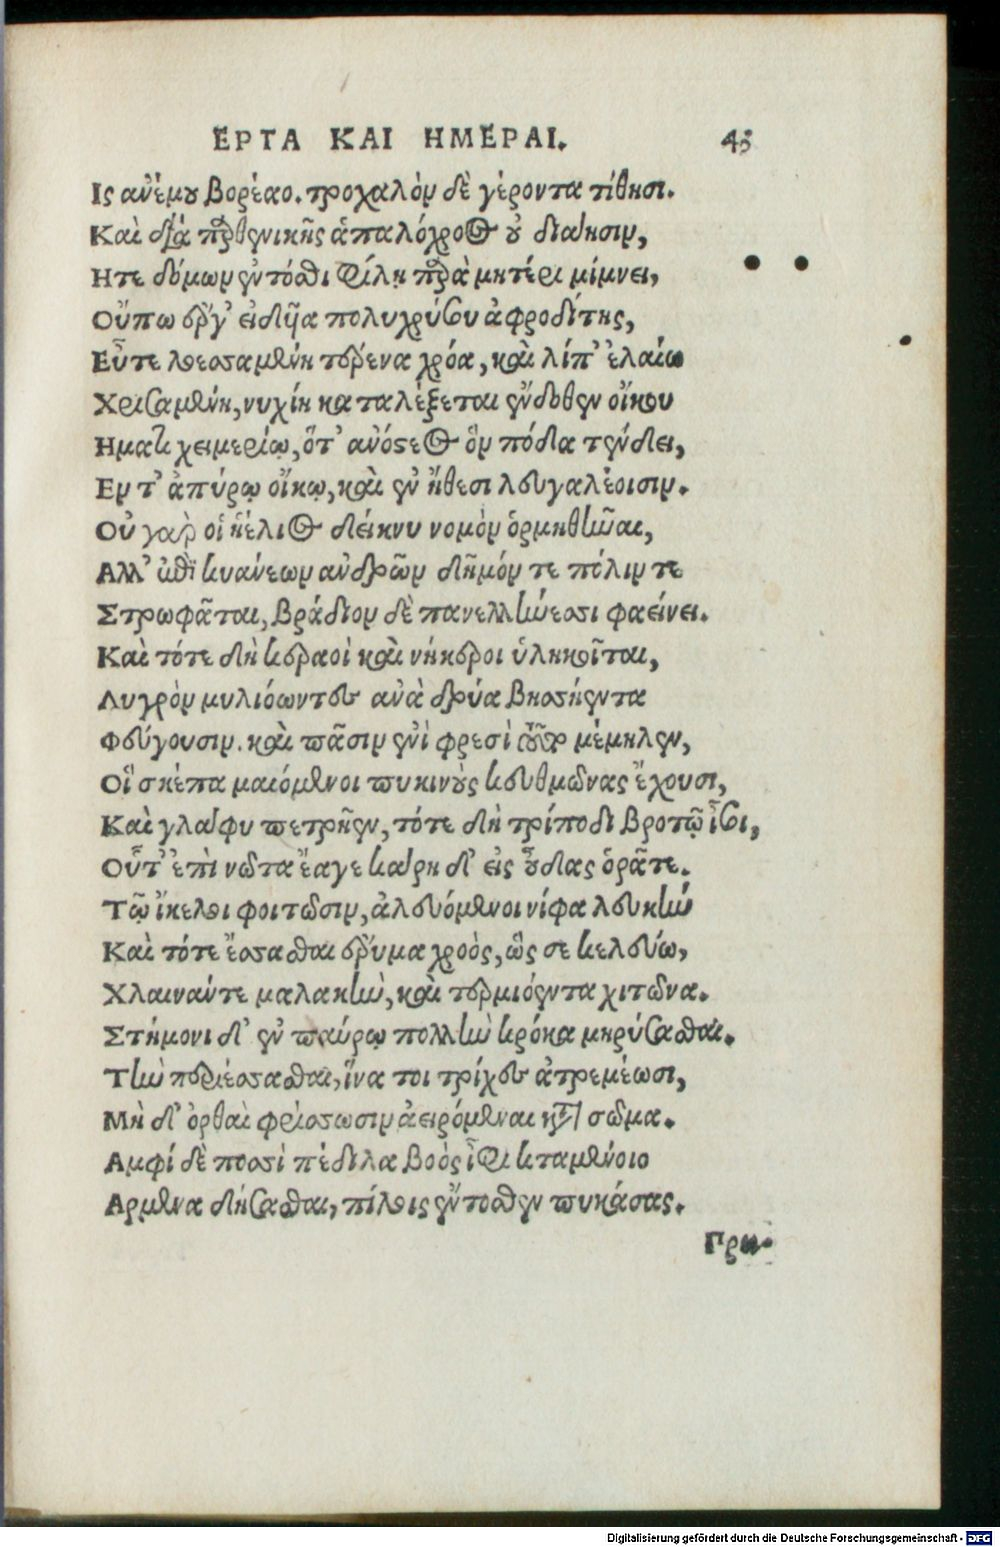 ΕΡΓΑ ΚΑΙ ΗΜΕΡΑΙ. 45
Ις ανέμου βορέαο. τροχαλὸν δὲ γέροντα τίθησι.
Καὶ διὰ παρθενικῆς ἁπαλόχροος οὐ διάησιν,
Ητε δόμων ἔντοσθι φίλῃ παρὰ μητέρι μίμνει,
Οὔπω ἔργ' εἰδῆα πολυχρύσου ἀφροδίτης,
Εὖτε λοεσσαμένη τέρενα χρόα, καὶ λίπ' ἐλαίω
Χρισαμένη, νυχίη καταλέξεται ἔνδοθεν οἴκου
Ηματι χειμερίῳ, ὅτ' ανόστεος ὃν πόδα τένδει,
Εν τ' ἀπύρῳ οἴκῳ, καὶ ἐν ἤθεσι λευγαλέοισιν.
Οὐ γαρ οἱ ἠέλιος δείκνυ νομὸν ὁρμηθῆναι,
Αλλ' ἐπὶ κυανέων ανδρῶν δῆμόν τε πόλιν τε
Στρωφᾶται, βράδιον δὲ πανελλήνεσσι φαείνει.
Καὶ τότε δὴ κεραοὶ καὶ νήκεροι ὑληκοῖται,
Λυγρὸν μυλιόωντες ανὰ δρύα βησσήεντα
Φεύγουσιν. καὶ πᾶσιν ἐνὶ φρεσὶ τοῦτο μέμηλεν,
Οἳ σκέπα μαιόμενοι πυκινοὺς κευθμῶνας ἔχουσι,
Καὶ γλάφυ πετρῆεν, τότε δὴ τρίποδι βροτῷ ἶσοι,
Οὗτ' ἐπὶ νῶτα ἔαγε κάρη δ' εἰς οὖδας ὁρᾶτε.
Τῷ ἴκελοι φοιτῶσιν, ἀλευόμενοι νίφα λευκὴν
Καὶ τότε ἕσσασθαι ἔρυμα χροὸς, ὥς σε κελεύω,
Χλαινάν τε μαλακὴν, καὶ τερμιόεντα χιτῶνα.
Στήμονι δ' ἐν παύρῳ πολλὴν κρόκα μηρύσασθαι.
Τὴν περιέσσασθαι, ἵνα τοι τρίχες ἀτρεμέωσι,
Μὴ δ' ὀρθαὶ φρίσσωσιν ἀειρόμεναι κατὰ σῶμα.
Αμφί δὲ ποσσὶ πέδιλα βοὸς ἶφι κταμένοιο
Αρμενα δήσασθαι, πίλοις ἔντοσθεν πυκάσας.
Πρω.
Digitalisierung gefördert durch die Deutsche Forschungsgemeinschaft - DFG